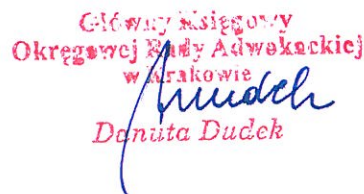 Główny Księgowy
Okręgowej Rady Adwokackiej
w Krakowie
Danuta Dudek